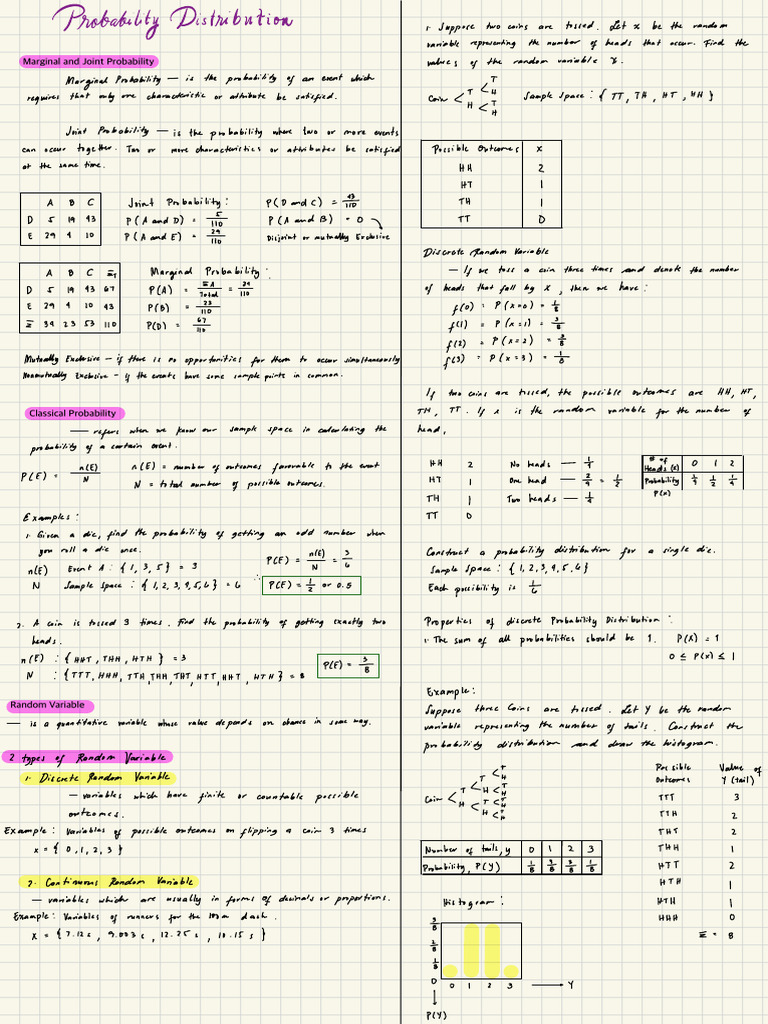 Probability Distribution
Marginal and Joint Probability
Marginal Probability — is the probability of an event which
requires that only one characteristic or attribute be satisfied.
Joint Probability — is the probability where two or more events
can occur together. Two or more characteristics or attributes be satisfied
at the same time.
A B C
D 5 19 43
E 29 4 10
Joint Probability:
P(A and D) = 5/110
P(A and E) = 29/110
P(D and C) = 43/110
P(A and B) = 0
Disjoint or mutually Exclusive
A B C Σ1
D 5 19 43 67
E 29 4 10 43
Σ 34 23 53 110
Marginal Probability:
P(A) = ΣA/Total = 34/110
P(B) = 23/110
P(D) = 67/110
Mutually Exclusive — if there is no opportunities for them to occur simultaneously
Nonmutually Exclusive — if the events have some sample points in common.
Classical Probability
— refers when we know our sample space in calculating the
probability of a certain event.
P(E) = n(E)/N
n(E) = number of outcomes favorable to the event
N = total number of possible outcomes.
Examples:
1. Given a die, find the probability of getting an odd number when
you roll a die once.
n(E) Event A : { 1, 3, 5 } = 3
N Sample Space : { 1, 2, 3, 4, 5, 6 } = 6
P(E) = n(E)/N = 3/6
∴ P(E) = 1/2 or 0.5
2. A coin is tossed 3 times. Find the probability of getting exactly two
heads.
n(E) : { HHT, THH, HTH } = 3
N : { TTT, HHH, TTH, THH, THT, HTT, HHT, HTH } = 8
P(E) = 3/8
Random Variable
— is a quantitative variable whose value depends on chance in some way.
2 types of Random Variable
1. Discrete Random Variable
— variables which have finite or countable possible
outcomes.
Example: Variables of possible outcomes on flipping a coin 3 times
x = { 0, 1, 2, 3 }
2. Continuous Random Variable
— variables which are usually in forms of decimals or proportions.
Example: Variables of runners for the 100m dash.
X = { 7.12s, 9.003s, 12.25s, 10.15s }
1. Suppose two coins are tossed. Let x be the random
variable representing the number of heads that occur. Find the
values of the random variable x.
Coin < T < T H
H < T H
Sample Space : { TT, TH, HT, HH }
Possible Outcomes X
HH 2
HT 1
TH 1
TT 0
Discrete Random Variable
— If we toss a coin three times and denote the number
of heads that fall by x, then we have:
f(0) = P(x=0) = 1/8
f(1) = P(x=1) = 3/8
f(2) = P(x=2) = 3/8
f(3) = P(x=3) = 1/8
If two coins are tossed, the possible outcomes are HH, HT,
TH, TT. If x is the random variable for the number of
head,
HH 2 No heads — 1/4
HT 1 One head — 2/4 = 1/2
TH 1 Two heads — 1/4
TT 0
# of Heads (x) 0 1 2
Probability P(x) 1/4 1/2 1/4
Construct a probability distribution for a single die.
Sample Space : { 1, 2, 3, 4, 5, 6 }
Each possibility is 1/6
Properties of discrete Probability Distribution:
1. The sum of all probabilities should be 1. P(X) = 1
0 ≤ P(x) ≤ 1
Example:
Suppose three Coins are tossed. Let Y be the random
variable representing the number of tails. Construct the
probability distribution and draw the histogram.
Coin < T H
Possible Outcomes Value of Y (tail)
TTT 3
TTH 2
THT 2
THH 1
HTT 2
HTH 1
HTH 1
HHH 0
Σ = 8
Number of tails, y 0 1 2 3
Probability, P(Y) 1/8 3/8 3/8 1/8
Histogram:
3/8
2/8
1/8
0
0 1 2 3 Y
P(Y)